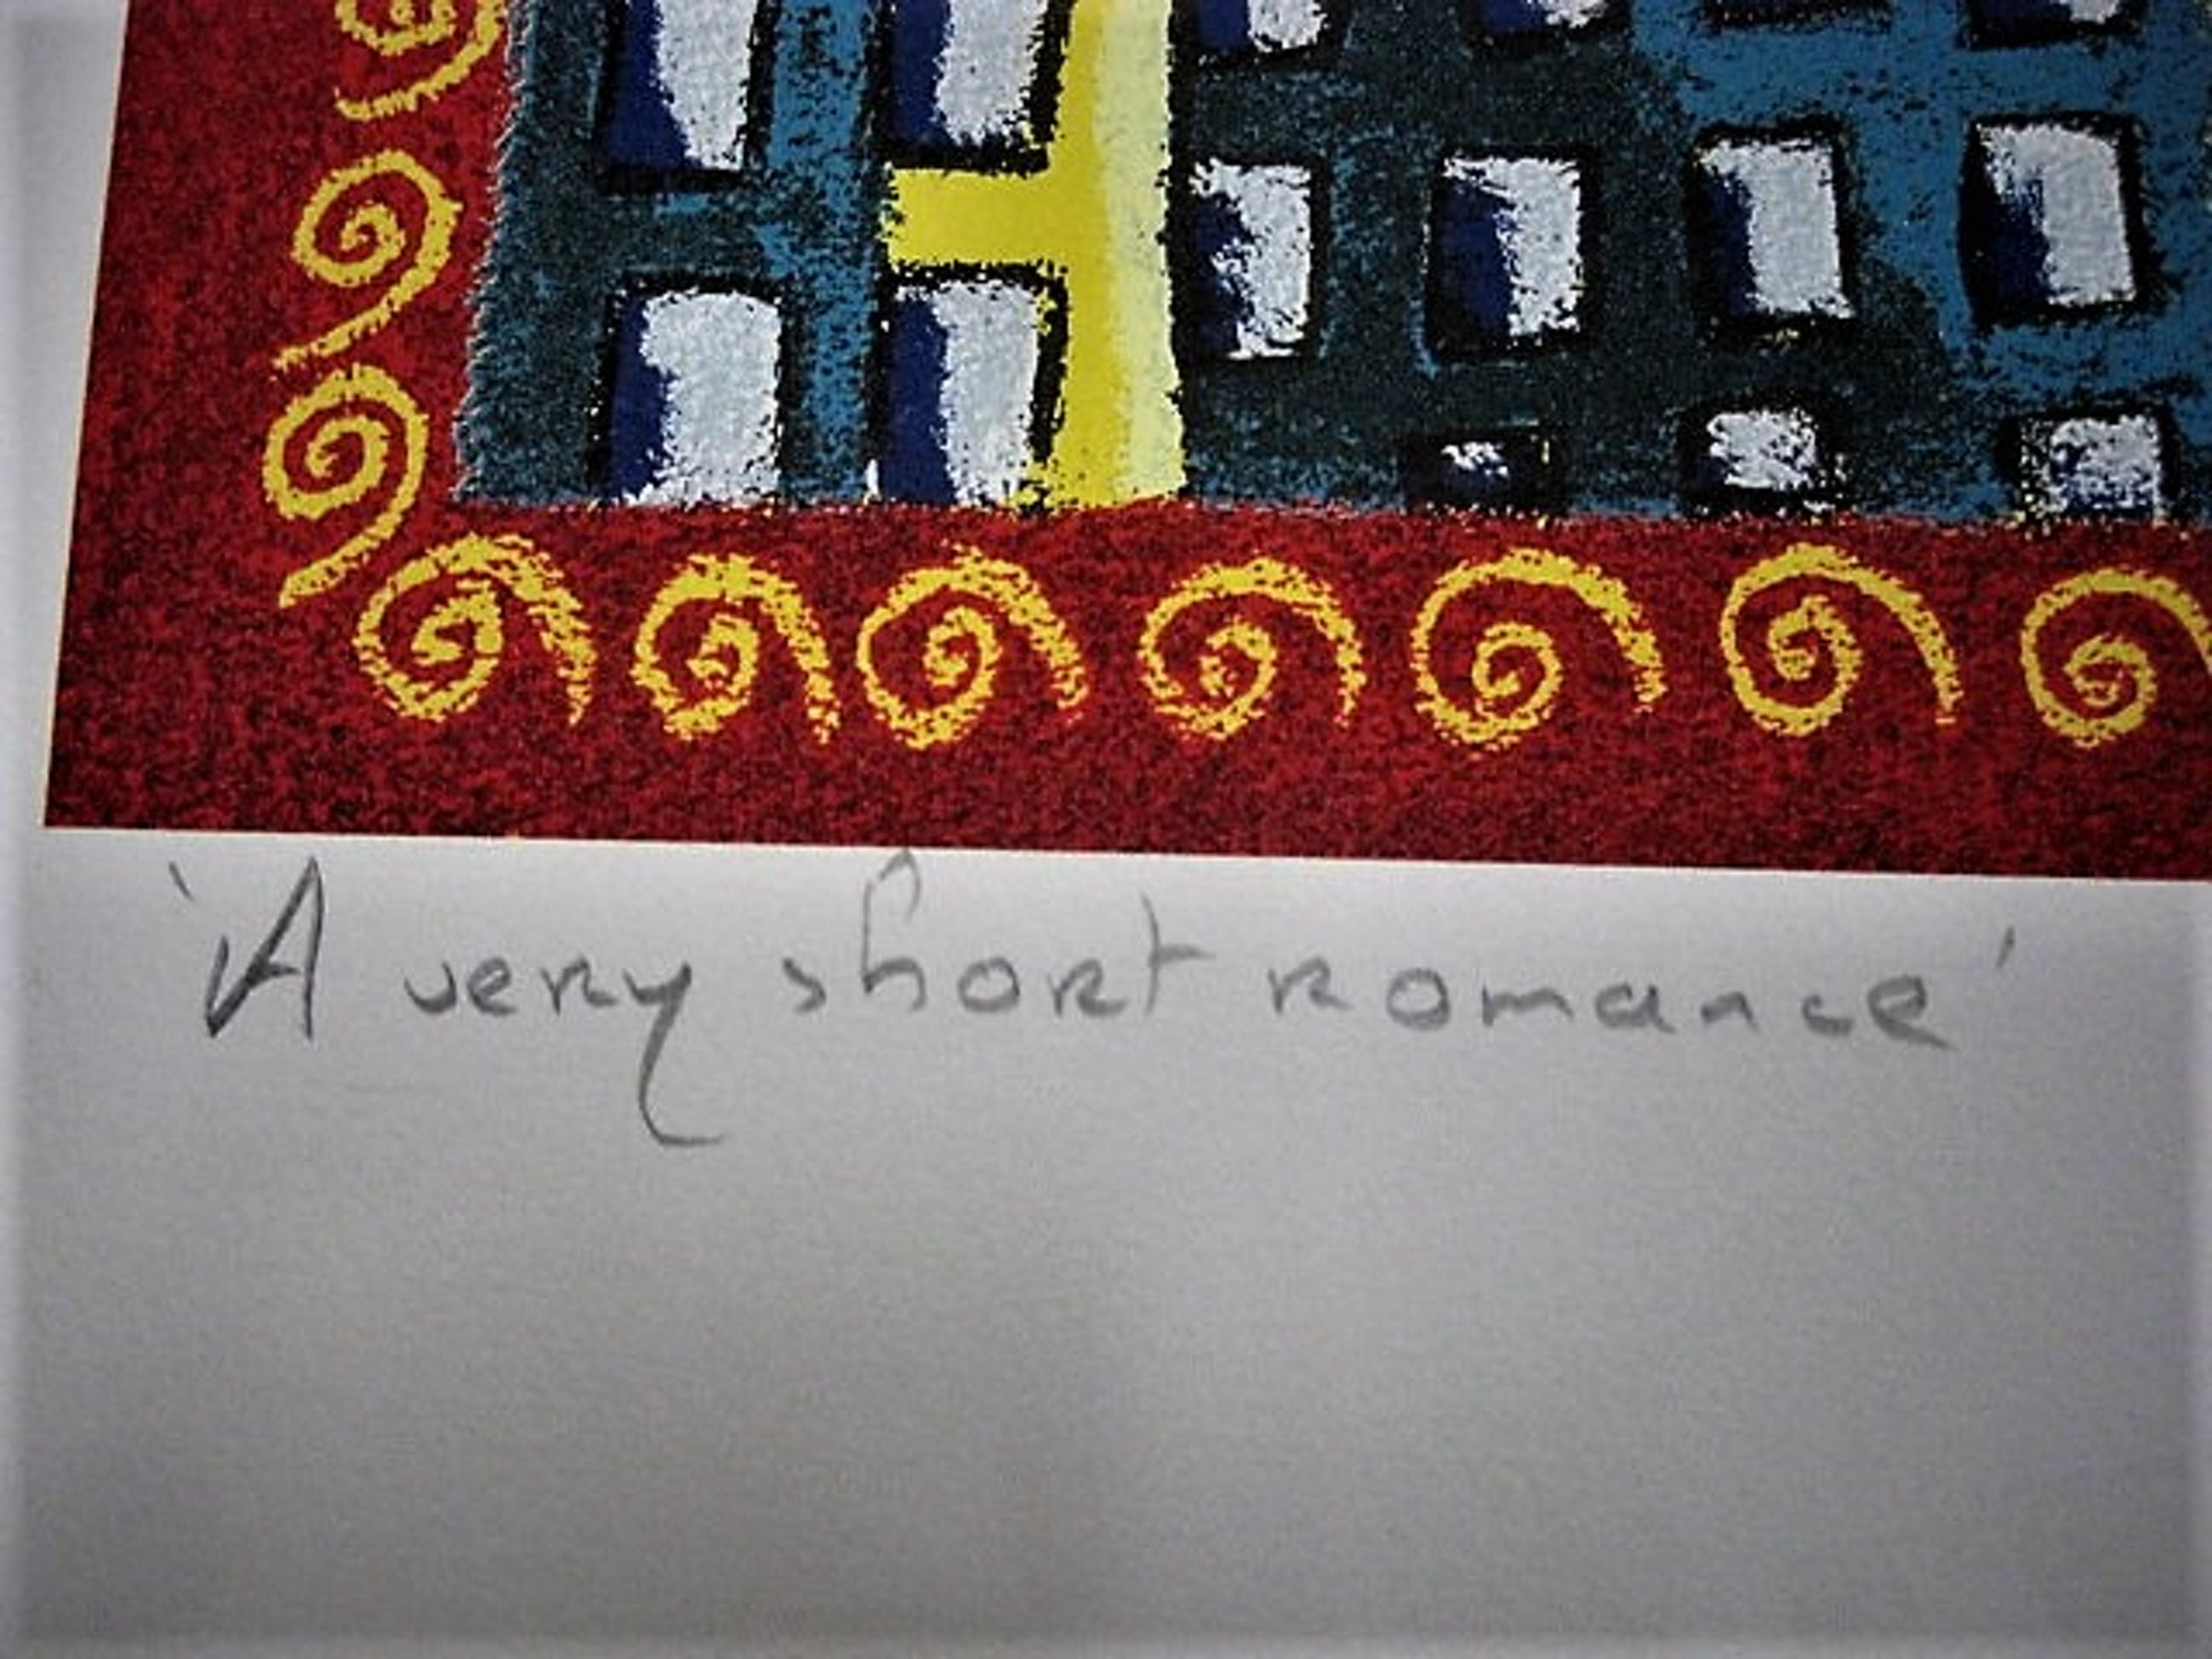 'A very short romance'